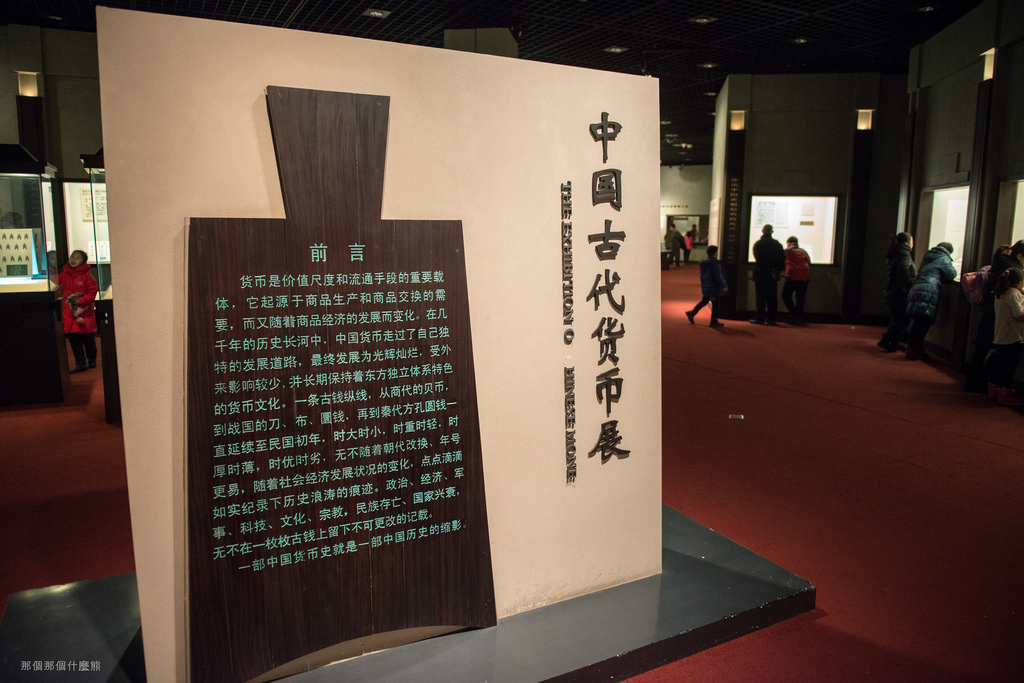 前 言
货币是价值尺度和流通手段的重要载
体，它起源于商品生产和商品交换的需
要，而又随着商品经济的发展而变化。在几
千年的历史长河中，中国货币走过了自己独
特的发展道路，最终发展为光辉灿烂，受外
来影响较少，并长期保持着东方独立体系特色
的货币文化。一条古钱纵线，从商代的贝币，
到战国的刀、布、圜钱，再到秦代方孔圆钱一
直延续至民国初年，时大时小，时重时轻，时
厚时薄，时优时劣，无不随着朝代改换、年号
更易，随着社会经济发展状况的变化，点点滴滴
如实纪录下历史浪涛的痕迹。政治、经济、军
事、科技、文化、宗教，民族存亡、国家兴衰，
无不在一枚枚古钱上留下不可更改的记载。
一部中国货币史就是一部中国历史的缩影。
中国古代货币展
THE EXHIBITION O HINESE MONE
那個那個什麼熊